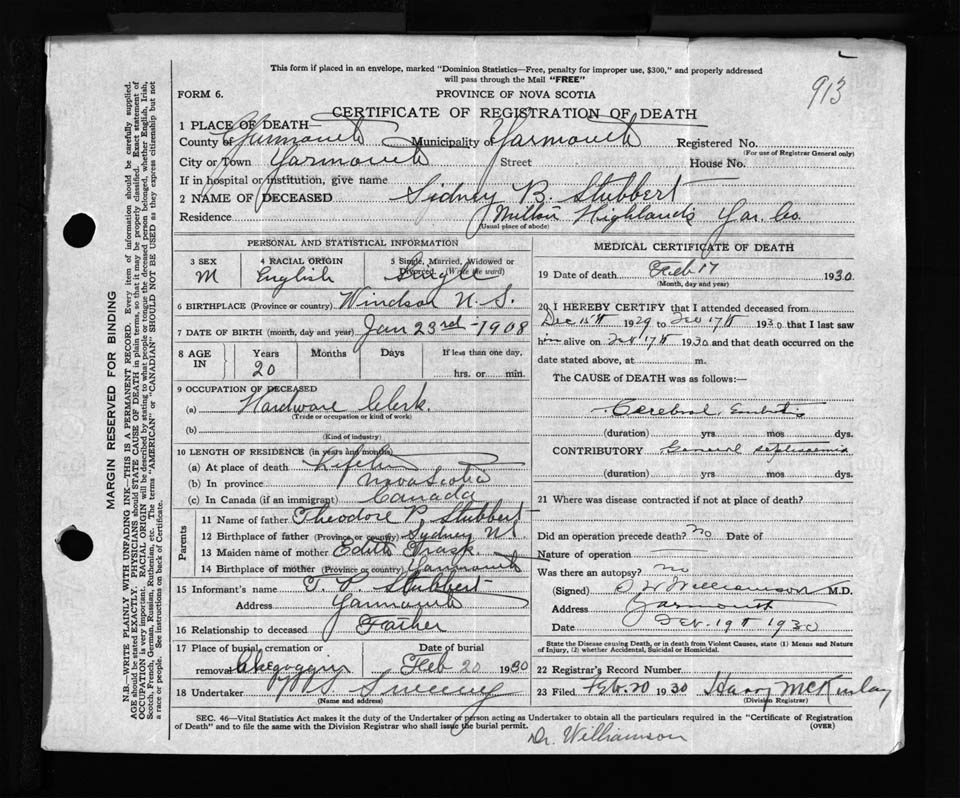 913
This form if placed in an envelope, marked "Dominion Statistics—Free, penalty for improper use, $300," and properly addressed
will pass through the Mail "FREE"
FORM 6.
PROVINCE OF NOVA SCOTIA
CERTIFICATE OF REGISTRATION OF DEATH
1 PLACE OF DEATH
County of Yarmouth Municipality of Yarmouth Registered No.
(For use of Registrar General only)
City or Town Yarmouth Street House No.
If in hospital or institution, give name
2 NAME OF DECEASED Sidney B. Stubbert
Residence Milton Highlands Yar. Co.
(Usual place of abode)
PERSONAL AND STATISTICAL INFORMATION
3 SEX 4 RACIAL ORIGIN 5 Single, Married, Widowed or Divorced (Write the word)
M English Single
6 BIRTHPLACE (Province or country) Windsor N.S.
7 DATE OF BIRTH (month, day and year) Jan 23rd - 1908
8 AGE IN Years Months Days If less than one day,
20 hrs. or min.
9 OCCUPATION OF DECEASED
(a) Hardware Clerk.
(Trade or occupation or kind of work)
(b)
(Kind of industry)
10 LENGTH OF RESIDENCE (in years and months)
(a) At place of death
(b) In province Nova Scotia
(c) In Canada (if an immigrant) Canada
Parents
11 Name of father Theodore P. Stubbert
12 Birthplace of father (Province or country) Sydney N.S.
13 Maiden name of mother Edith Trask.
14 Birthplace of mother (Province or country) Yarmouth
15 Informant's name T. P. Stubbert
Address Yarmouth
16 Relationship to deceased Father
17 Place of burial, cremation or removal Chegoggin Date of burial Feb 20 1930
18 Undertaker Sweeny
(Name and address)
MEDICAL CERTIFICATE OF DEATH
19 Date of death Feb 17 1930
(Month, day and year)
20 I HEREBY CERTIFY that I attended deceased from
Dec 15th 1929 to Feb 17th 1930 that I last saw
him alive on Feb 17th 1930 and that death occurred on the
date stated above, at m.
The CAUSE of DEATH was as follows:—
Cerebral
(duration) yrs mos dys.
CONTRIBUTORY General Septicaemia
(duration) yrs mos dys.
21 Where was disease contracted if not at place of death?
Did an operation precede death? No Date of
Nature of operation
Was there an autopsy? no
(Signed) Williamson M.D.
Address Yarmouth
Date Feb. 19th 1930
State the Disease causing Death, or in death from Violent Causes, state (1) Means and Nature
of Injury, (2) whether Accidental, Suicidal or Homicidal.
22 Registrar's Record Number
23 Filed Feb. 20 1930 Harry McKinlay
(Division Registrar)
SEC. 46—Vital Statistics Act makes it the duty of the Undertaker or person acting as Undertaker to obtain all the particulars required in the "Certificate of Registration
of Death" and to file the same with the Division Registrar who shall issue the burial permit.
(OVER)
Dr. Williamson
MARGIN RESERVED FOR BINDING
N.B.—WRITE PLAINLY WITH UNFADING INK—THIS IS A PERMANENT RECORD. Every item of information should be carefully supplied.
AGE should be stated EXACTLY. PHYSICIANS should STATE CAUSE OF DEATH in plain terms, so that it may be properly classified. Exact statement of
OCCUPATION is very important. RACIAL ORIGIN will be described by stating to what people or tongue the deceased person belonged, whether English, Irish,
Scotch, French, German, Russian, Ruthenian, etc. The terms "AMERICAN" or "CANADIAN" SHOULD NOT BE USED as they express citizenship but not
a race or people. See instructions on back of Certificate.